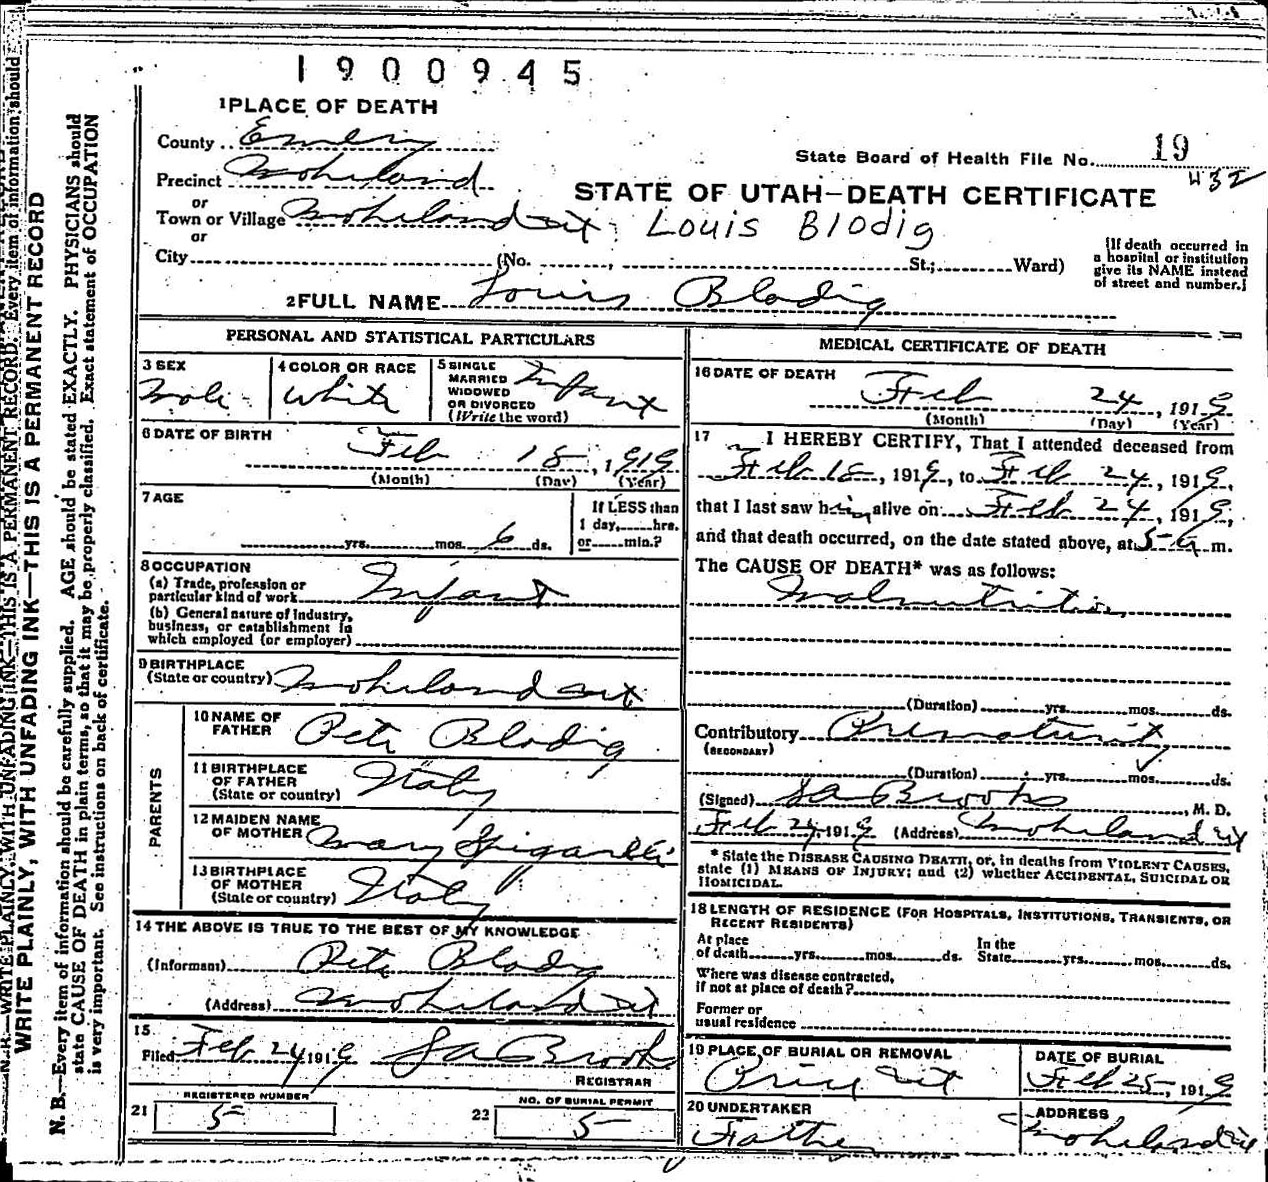 1900945
1 PLACE OF DEATH
County Emery
State Board of Health File No. 19
432
Precinct Mohrland
or
STATE OF UTAH—DEATH CERTIFICATE
Town or Village Mohrland Ut. Louis Blodig
or
City (No. , St.; Ward)
[If death occurred in
a hospital or institution
give its NAME instead
of street and number.]
2 FULL NAME Louis Blodig
PERSONAL AND STATISTICAL PARTICULARS
3 SEX
Male
4 COLOR OR RACE
White
5 SINGLE
MARRIED
WIDOWED
OR DIVORCED
(Write the word)
Infant
6 DATE OF BIRTH
Feb 18, 1919
(Month) (Day) (Year)
7 AGE
yrs. mos. 6 ds.
If LESS than
1 day, hrs.
or min.?
8 OCCUPATION
(a) Trade, profession or
particular kind of work Infant
(b) General nature of industry,
business, or establishment in
which employed (or employer)
9 BIRTHPLACE
(State or country) Mohrland Ut
PARENTS
10 NAME OF
FATHER Pete Blodig
11 BIRTHPLACE
OF FATHER
(State or country) Italy
12 MAIDEN NAME
OF MOTHER Mary Spigarelli
13 BIRTHPLACE
OF MOTHER
(State or country) Italy
14 THE ABOVE IS TRUE TO THE BEST OF MY KNOWLEDGE
(Informant) Pete Blodig
(Address) Mohrland Ut
15
Filed Feb 24 1919 SA Brooks
REGISTRAR
REGISTERED NUMBER
21 5
NO. OF BURIAL PERMIT
22 5
MEDICAL CERTIFICATE OF DEATH
16 DATE OF DEATH
Feb 24, 1919
(Month) (Day) (Year)
17 I HEREBY CERTIFY, That I attended deceased from
Feb 18, 1919, to Feb 24, 1919,
that I last saw him alive on Feb 24, 1919,
and that death occurred, on the date stated above, at 5 a m.
The CAUSE OF DEATH* was as follows:
Malnutrition
(Duration) yrs. mos. ds.
Contributory Prematurity
(SECONDARY)
(Duration) yrs. mos. ds.
(Signed) SA Brooks, M. D.
Feb 24, 1919 (Address) Mohrland Ut
* State the DISEASE CAUSING DEATH, or, in deaths from VIOLENT CAUSES,
state (1) MEANS OF INJURY; and (2) whether ACCIDENTAL, SUICIDAL OR
HOMICIDAL.
18 LENGTH OF RESIDENCE (FOR HOSPITALS, INSTITUTIONS, TRANSIENTS, OR
RECENT RESIDENTS)
At place
of death yrs. mos. ds.
In the
State yrs. mos. ds.
Where was disease contracted,
if not at place of death?
Former or
usual residence
19 PLACE OF BURIAL OR REMOVAL
Price Ut
DATE OF BURIAL
Feb 25, 1919
20 UNDERTAKER
Father
ADDRESS
Mohrland Ut
N. B.—WRITE PLAINLY, WITH UNFADING INK—THIS IS A PERMANENT RECORD. Every item of information should
WRITE PLAINLY, WITH UNFADING INK—THIS IS A PERMANENT RECORD
N. B.—Every item of information should be carefully supplied. AGE should be stated EXACTLY. PHYSICIANS should
state CAUSE OF DEATH in plain terms, so that it may be properly classified. Exact statement of OCCUPATION
is very important. See instructions on back of certificate.